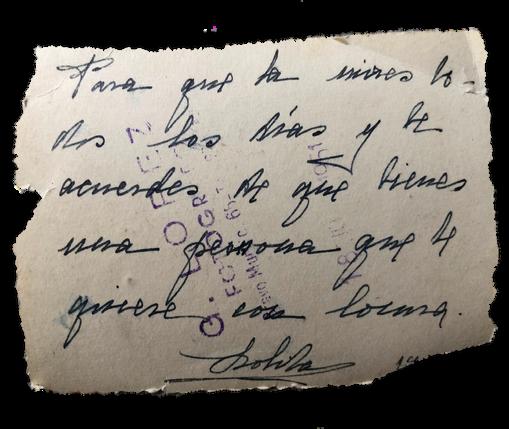 Para que la mires to-
dos los días y te
acuerdes de que tienes
una persona que te
quiere con locura.
Lolita
G. LOPEZ
FOTOGR